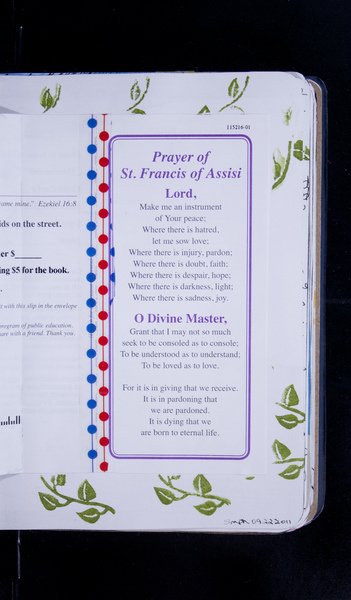 115216-01
Prayer of
St. Francis of Assisi
Lord,
Make me an instrument
of Your peace;
Where there is hatred,
let me sow love;
Where there is injury, pardon;
Where there is doubt, faith;
Where there is despair, hope;
Where there is darkness, light;
Where there is sadness, joy.
O Divine Master,
Grant that I may not so much
seek to be consoled as to console;
To be understood as to understand;
To be loved as to love.
For it is in giving that we receive.
It is in pardoning that
we are pardoned.
It is dying that we
are born to eternal life.
ome mine." Ezekiel 16:8
ids on the street.
er $
ing $5 for the book.
t with this slip in the envelope
nogram of public education.
are with a friend. Thank you.
09.22.2011